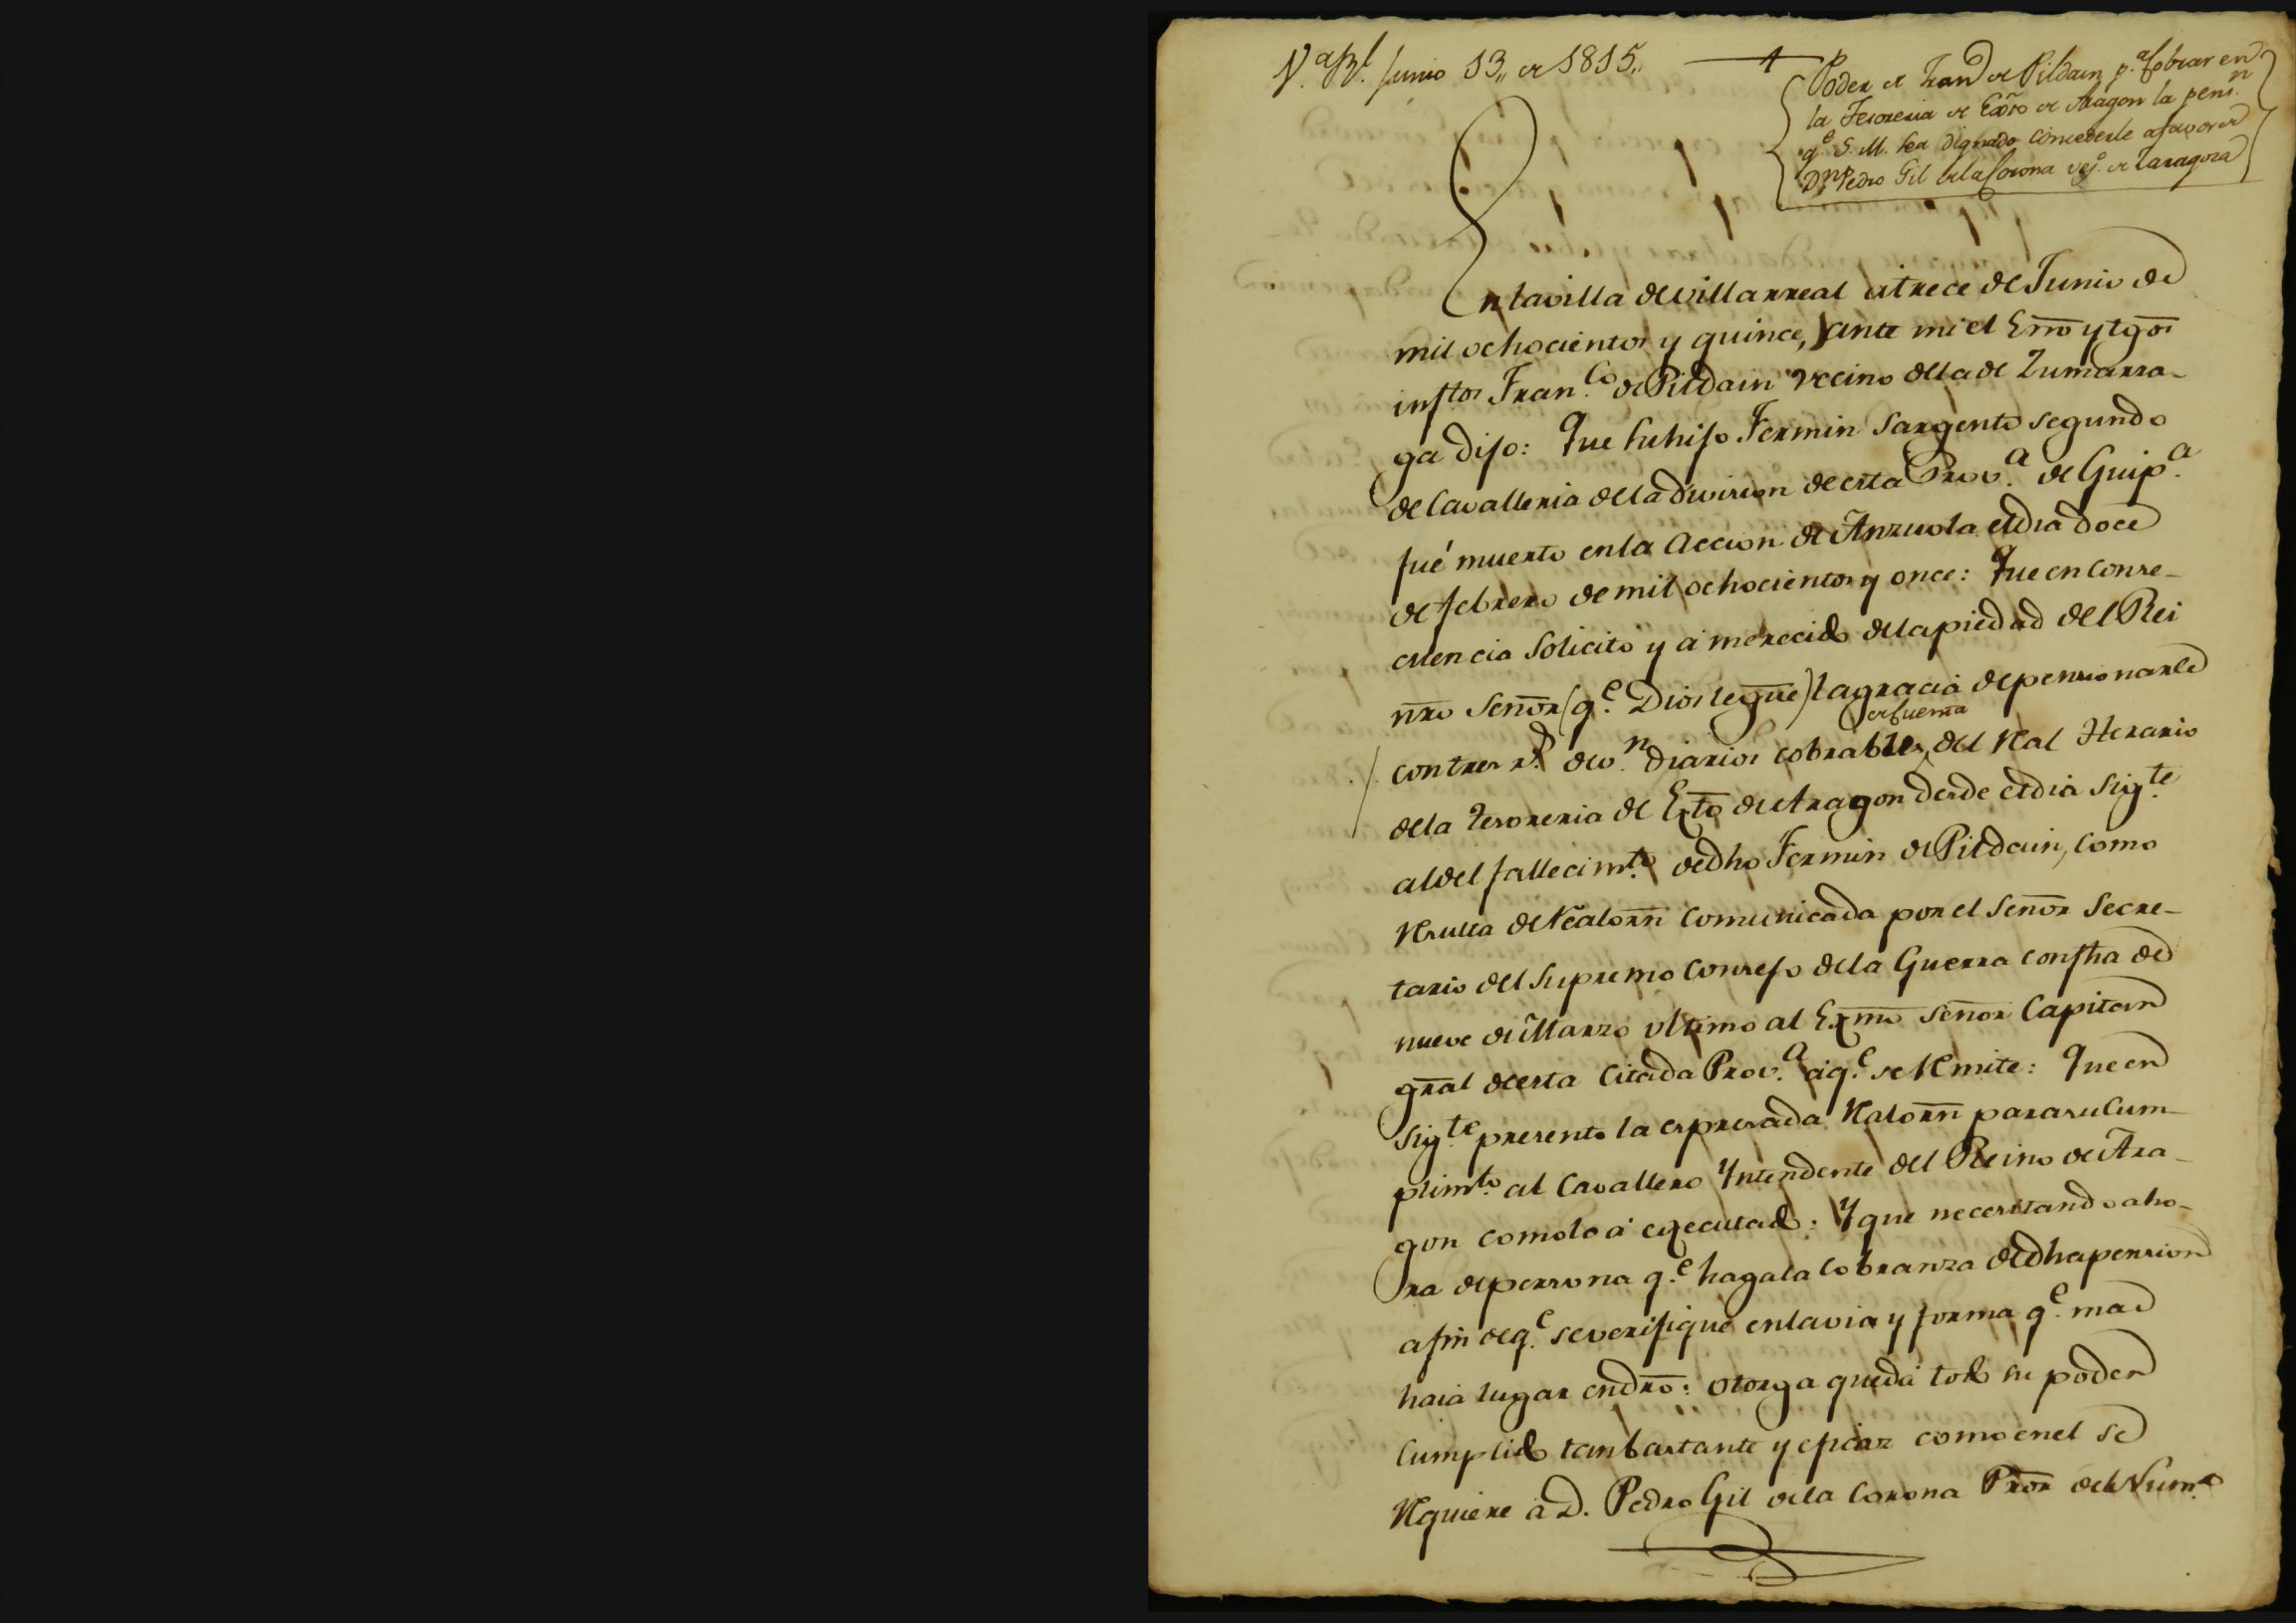 V.ª R.l Junio 13,, de 1815,,
Poder de Fran.co de Pildain p.ª cobrar en
la Tesoreria de Exto de Aragon la pens.n
q.e S. M. sea dignado concederle a favor de
D.n Pedro Gil de la Corona vez.º de Zaragoza
En la villa de villarreal a trece de Junio de
mil ochocientos y quince, ante mi el Ssno y tgos
insftos Fran.co de Pildain vecino de la de Zumarra-
ga dijo: Que su hijo Fermin Sargento segundo
de Cavalleria de la Division de esta Prov.a de Guip.a
fué muerto en la Accion de Anzuola el dia doce
de febrero de mil ochocientos y once: Que en conse-
cuencia solicito y á merecido de la piedad del Rei
nro Señor (q.e Dios le gue) la gracia de pensionarle
con tres r.s de v.n diarios cobrables de cuenta del Ral Herario
de la Tesoreria de Exto de Aragon desde el dia sig.te
al del fallecim.to de dho Fermin de Pildain, como
Resulta de Real orn comunicada por el Señor Secre-
tario del Supremo Consejo de la Guerra con fha de
nueve de Marzo ultimo al Exmo Señor Capitan
gral de esta citada Prov.a á q.e se Remite: Que en
sig.te presento la expresada Ral orn para su cum-
plim.to al Cavallero Yntendente del Reino de Ara-
gon como lo á executado: Y que necesitando aho-
ra de persona q.e haga la cobranza de dha pension
a fin de q.e se verifique en la via y forma q.e mas
haia lugar en dro: Otorga que da todo su poder
cumplido tan bastante y eficaz como en el se
Requiere á D. Pedro Gil de la Corona Pror del Num.o